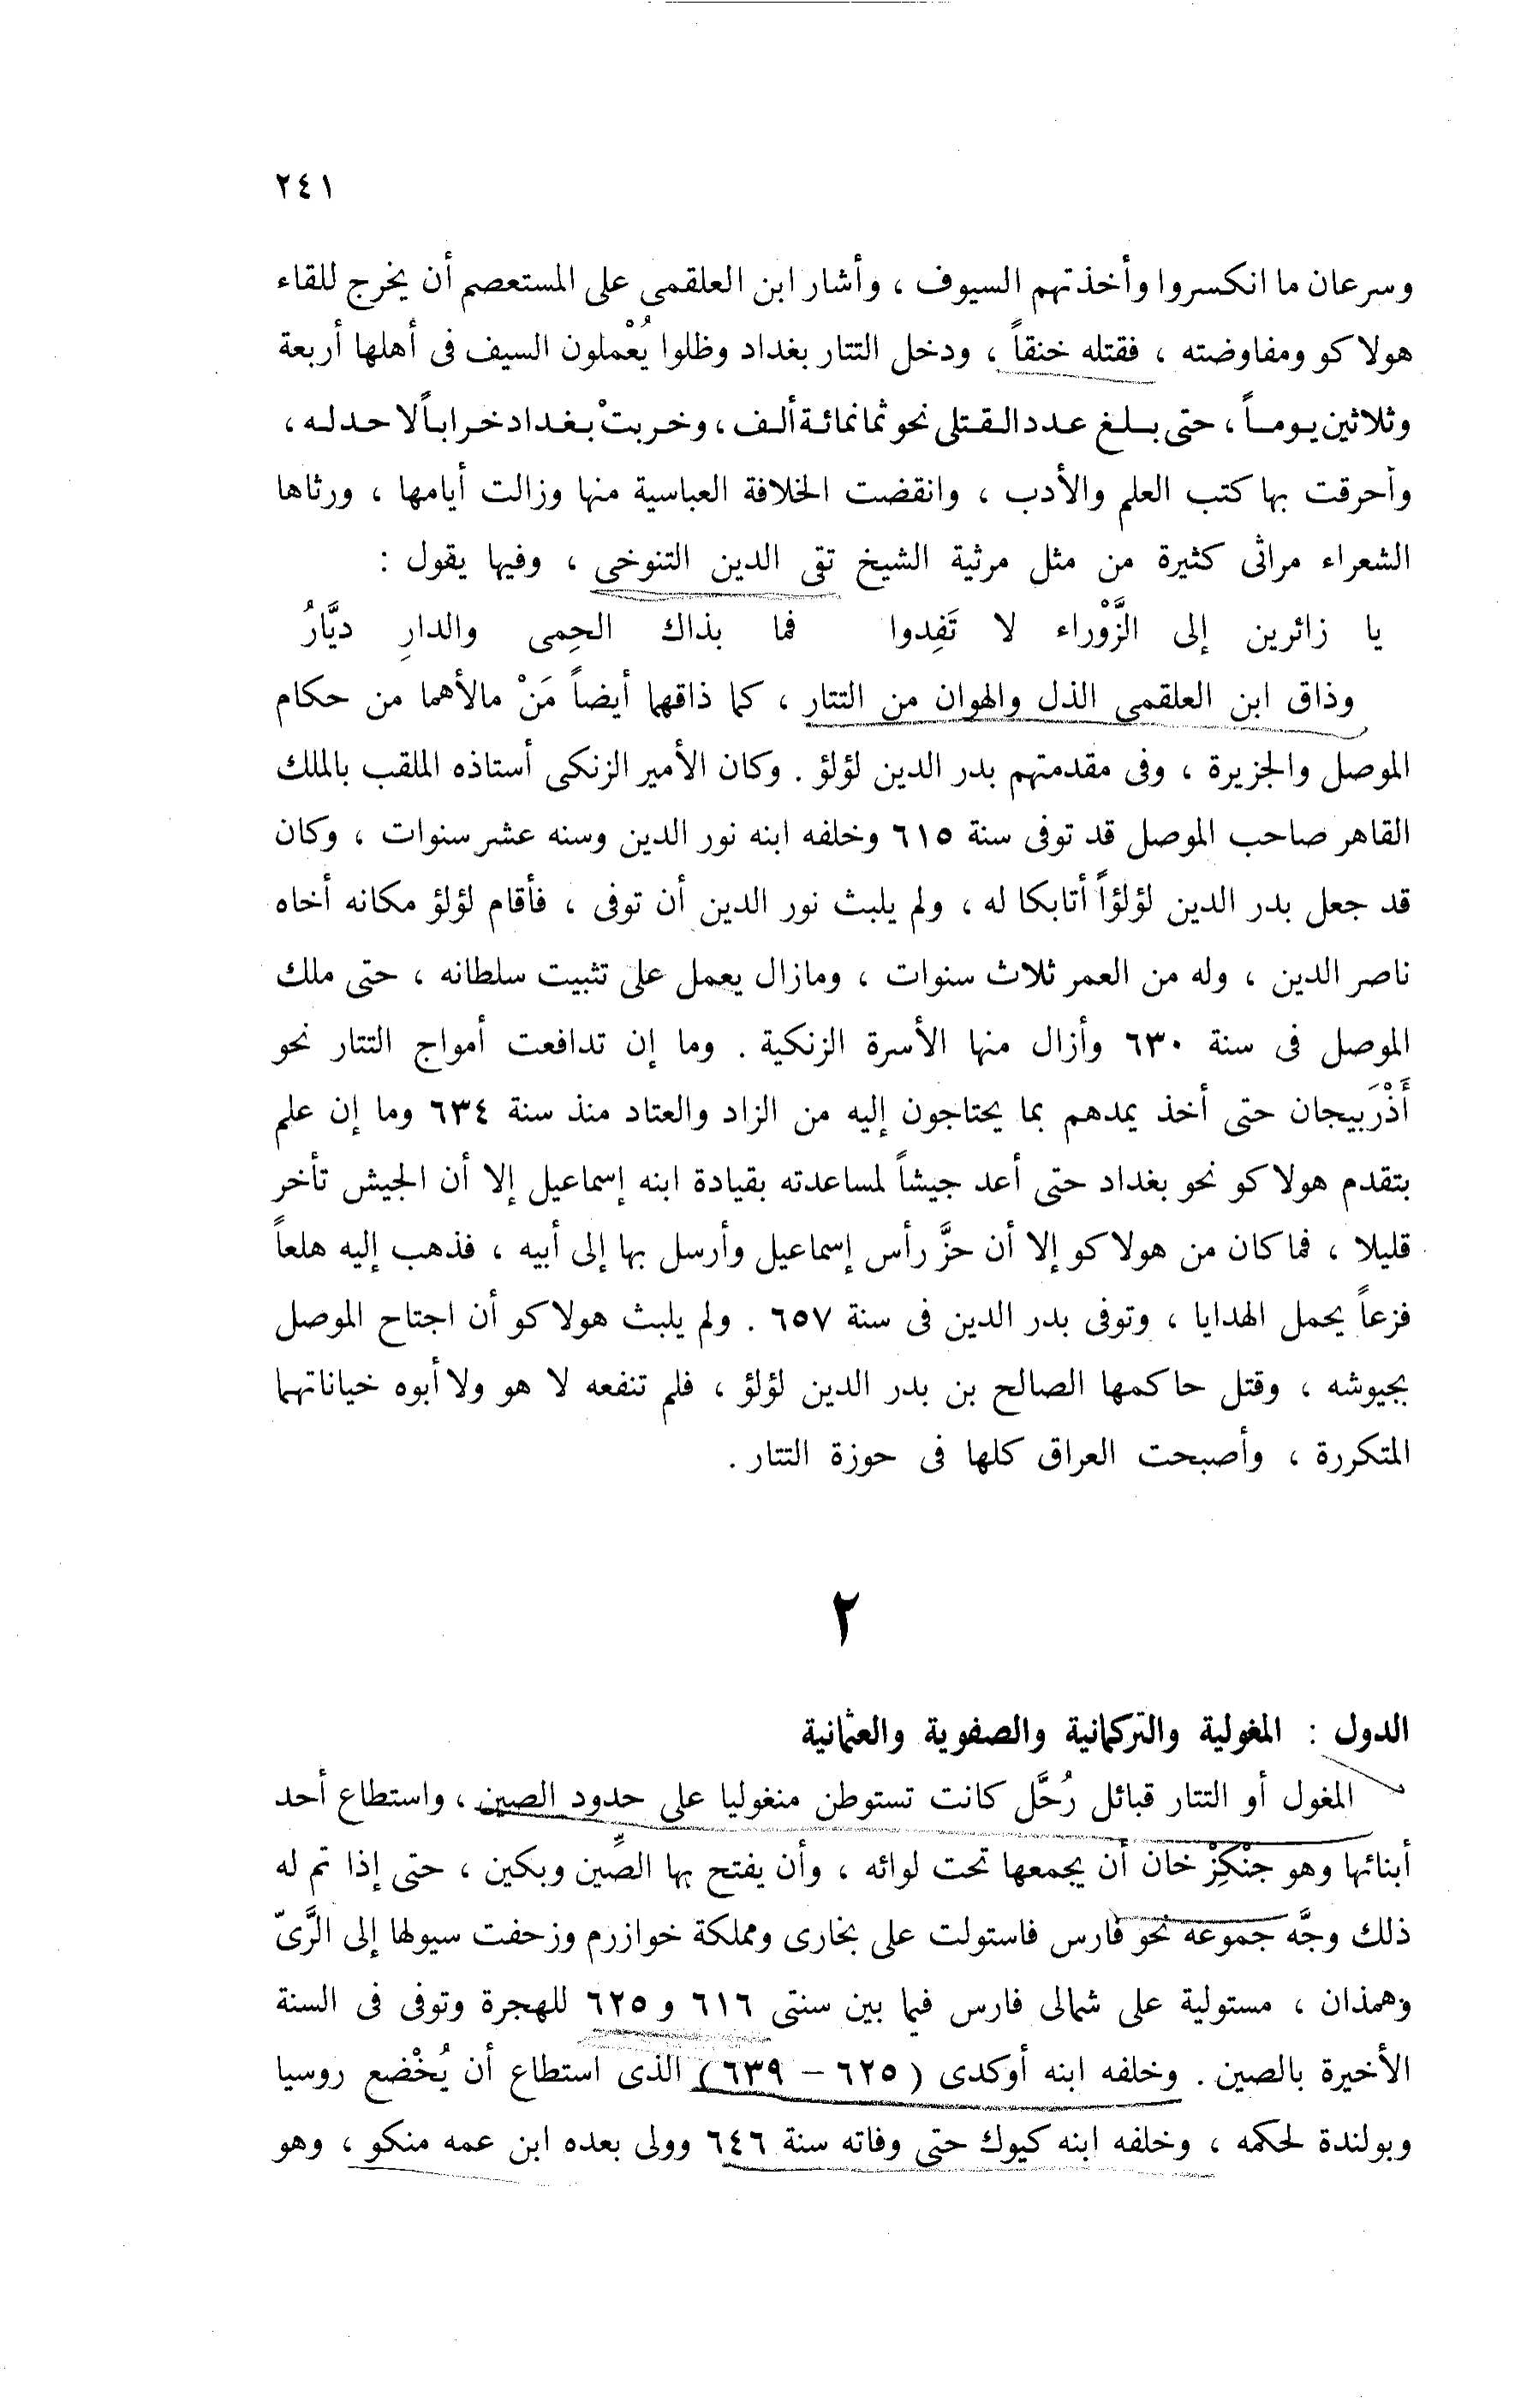 ٢٤١
وسرعان ما انكسروا وأخذتهم السيوف ، وأشار ابن العلقمى على المستعصم أن يخرج للقاء
هولاكو ومفاوضته ، فقتله خنقاً ، ودخل التتار بغداد وظلوا يُعْملون السيف فى أهلها أربعة
وثلاثين يومـاً ، حتى بـلـغ عـدد الـقـتلى نحو ثمانمائـة ألـف ، وخـربتْ بـغـداد خـرابـاً لا حـد لـه ،
وأحرقت بها كتب العلم والأدب ، وانقضت الخلافة العباسية منها وزالت أيامها ، ورثاها
الشعراء مراثى كثيرة من مثل مرثية الشيخ تقى الدين التنوخى ، وفيها يقول :
يا زائرين إلى الزَّوْراء لا تَفِدوا فما بذاك الحِمى والدارِ ديَّارُ
وذاق ابن العلقمى الذل والهوان من التتار ، كما ذاقهما أيضاً مَنْ مالأهما من حكام
الموصل والجزيرة ، وفى مقدمتهم بدر الدين لؤلؤ . وكان الأمير الزنكى أستاذه الملقب بالملك
القاهر صاحب الموصل قد توفى سنة ٦١٥ وخلفه ابنه نور الدين وسنه عشر سنوات ، وكان
قد جعل بدر الدين لؤلؤاً أتابكا له ، ولم يلبث نور الدين أن توفى ، فأقام لؤلؤ مكانه أخاه
ناصر الدين ، وله من العمر ثلاث سنوات ، ومازال يعمل على تثبيت سلطانه ، حتى ملك
الموصل فى سنة ٦٣٠ وأزال منها الأسرة الزنكية . وما إن تدافعت أمواج التتار نحو
أَذْرَبيجان حتى أخذ يمدهم بما يحتاجون إليه من الزاد والعتاد منذ سنة ٦٣٤ وما إن علم
بتقدم هولاكو نحو بغداد حتى أعد جيشاً لمساعدته بقيادة ابنه إسماعيل إلا أن الجيش تأخر
قليلا ، فما كان من هولاكو إلا أن حزَّ رأس إسماعيل وأرسل بها إلى أبيه ، فذهب إليه هلعاً
فزعاً يحمل الهدايا ، وتوفى بدر الدين فى سنة ٦٥٧ . ولم يلبث هولاكو أن اجتاح الموصل
بجيوشه ، وقتل حاكمها الصالح بن بدر الدين لؤلؤ ، فلم تنفعه لا هو ولا أبوه خياناتهما
المتكررة ، وأصبحت العراق كلها فى حوزة التتار .
٢
الدول : المغولية والتركمانية والصفوية والعثمانية
المغول أو التتار قبائل رُحَّل كانت تستوطن منغوليا على حدود الصين ، واستطاع أحد
أبنائها وهو جنْكِزْ خان أن يجمعها تحت لوائه ، وأن يفتح بها الصِّين وبكين ، حتى إذا تم له
ذلك وجَّه جموعه نحو فارس فاستولت على بخارى ومملكة خوازرم وزحفت سيولها إلى الرَّىّ
وهمذان ، مستولية على شمالى فارس فيما بين سنتى ٦١٦ و ٦٢٥ للهجرة وتوفى فى السنة
الأخيرة بالصين . وخلفه ابنه أوكدى ( ٦٢٥ – ٦٣٩ ) الذى استطاع أن يُخْضع روسيا
وبولندة لحكمه ، وخلفه ابنه كيوك حتى وفاته سنة ٦٤٦ وولى بعده ابن عمه منكو ، وهو